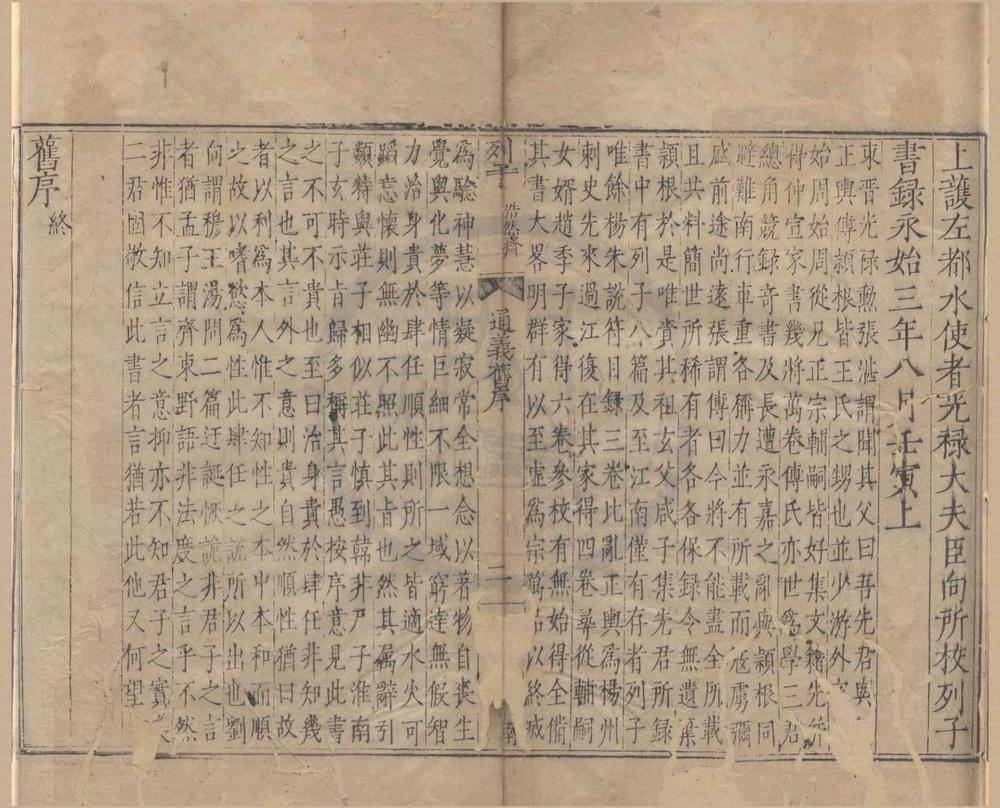 上護左都水使者光祿大夫臣向所校列子
書録永始三年八月壬寅上
東晋光祿勲張湛謂聞其父曰吾先君與
正輿傅頴根皆王氏之甥也並少游外家
始周始周從兄正宗輔嗣皆好集文籍先并
得仲宣家書幾將萬卷傅氏亦世爲學三君
總角競録竒書及長遭永嘉之亂與頴根同
避難南行車重各稱力並有所載而冦虜彌
盛前途尚遠張謂傅曰今將不能盡全所載
且共料簡世所稀有者各各保録令無遺棄
頴根於是唯賫其祖玄父咸子集先君所録
書中有列子八篇及至江南僅有存者列子
唯餘楊朱說符目録三卷比亂正輿爲楊州
刺史先來過江復在其家得四卷尋從輔嗣
女婿趙季子家得六卷參校有無始得全備
其書大畧明群有以至虛爲宗萬品以終滅
列子
浩然齋
通義舊序
二
南
爲驗神慧以凝寂常全想念以著物自喪生
覺與化夢等情巨細不限一域窮達無假智
力治身貴於肆任順性則所之皆適水火可
蹈忘懷則無幽不照此其㫖也然其属辭引
類特與莊子相似莊子慎到韓非尸子淮南
子玄時示㫖歸多稱其言愚按序意見此書
之不可不貴也至曰治身貴於肆任非知幾
之言也其言外之意則貴自然順性猶曰故
者以利爲本人惟不知性之本中本和而順
之故以嗜慾爲性此肆任之說所以出也劉
向謂穆王湯問二篇迂誕恢詭非君子之言
者猶孟子謂齊東野語非法度之言乎不然
非惟不知立言之意抑亦不知君子之實矣
二君固敬信此書者言猶若此他又何望
舊序 終